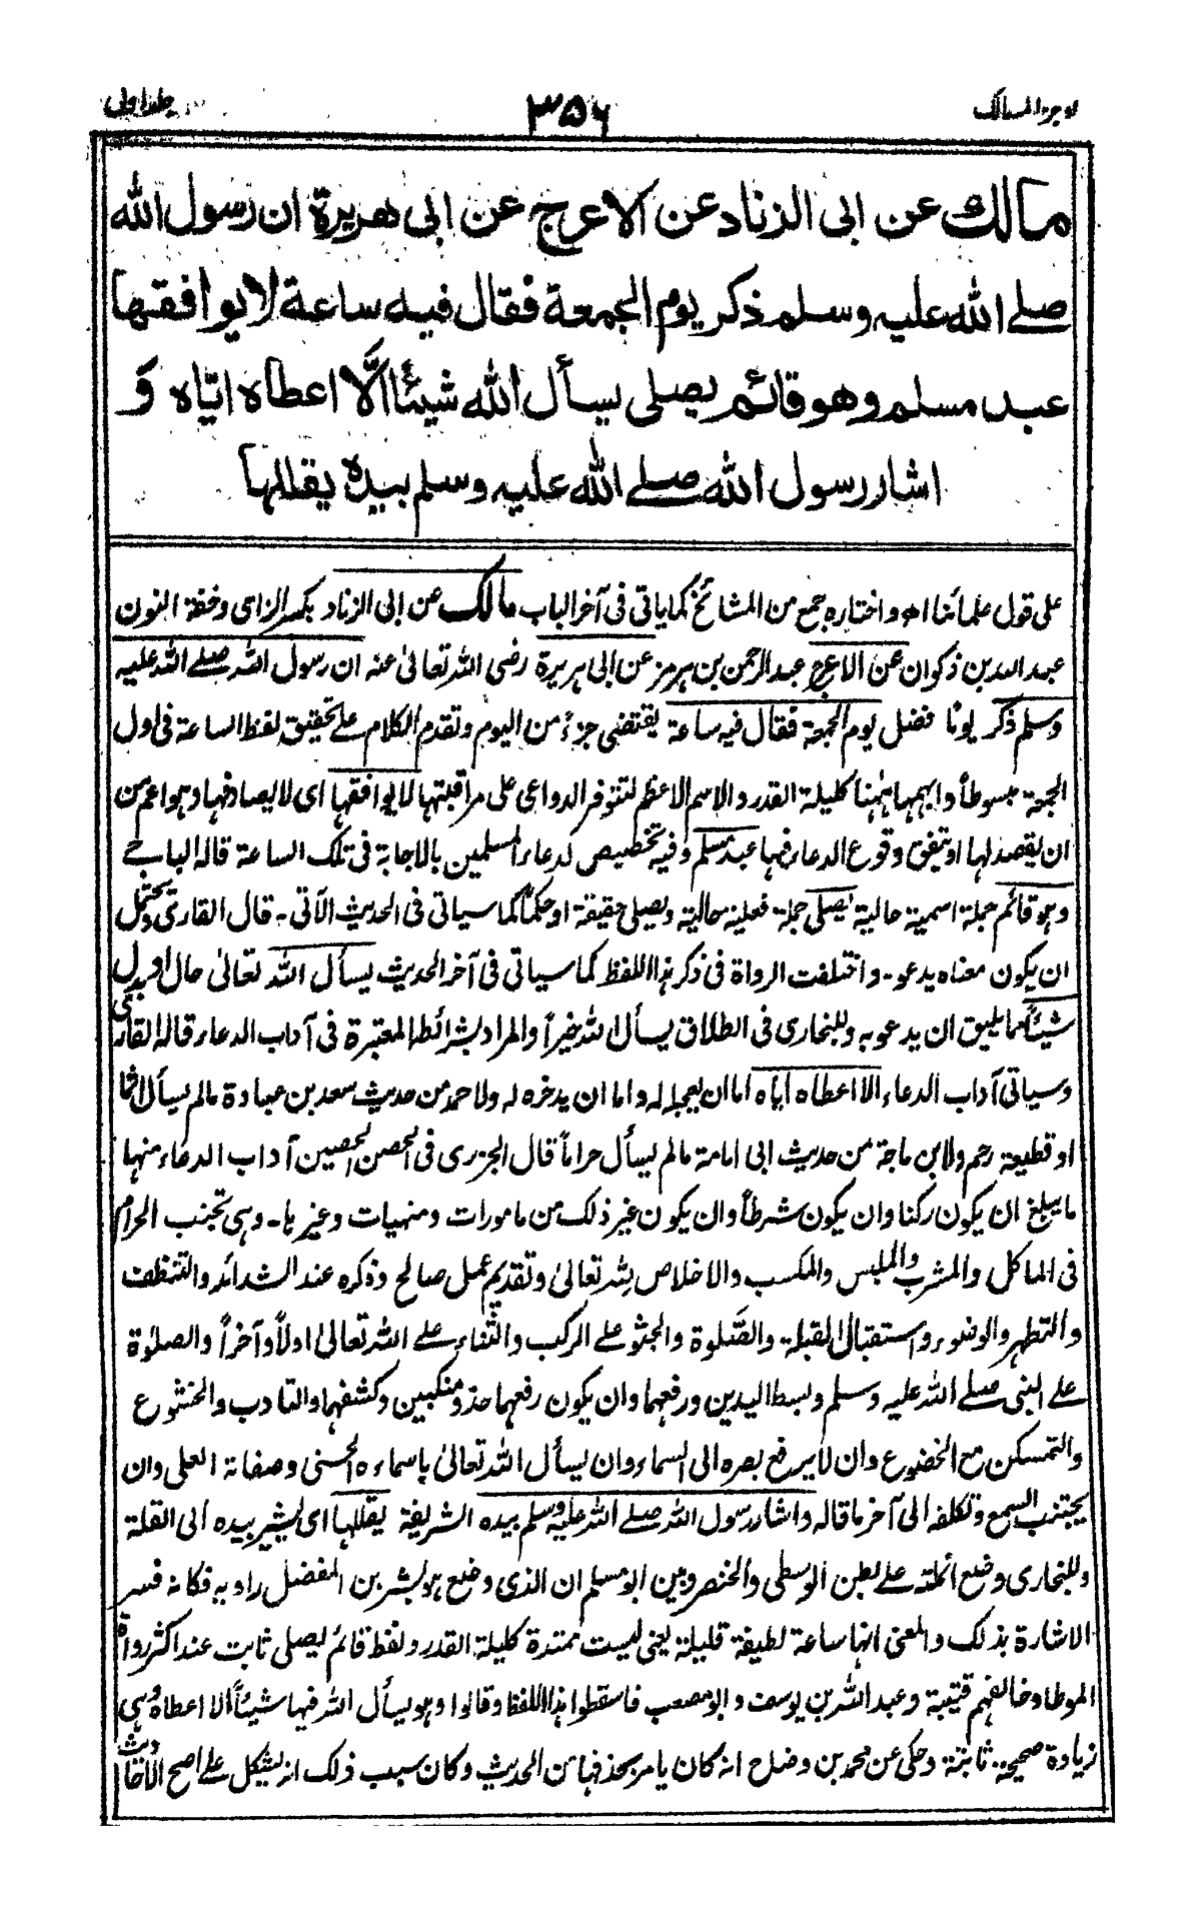 اوجز المسالك
٣٥٦
جلد اول
مالك عن ابى الزناد عن الاعرج عن ابى هريرة ان رسول الله
صلے الله عليه وسلم ذكر يوم الجمعة فقال فيه ساعة لا يوافقها
عبد مسلم وهو قائم يصلى يسأل الله شيئا الّا اعطاه ايّاه و
اشار رسول الله صلے الله عليه وسلم بيده يقللها
على قول علمائنا اھ واختاره جمع من المشائخ كما ياتى فى آخر الباب مالك عن ابى الزناد بكسر الزاى وخفة النون
عبد الله بن ذكوان عن الاعرج عبد الرحمن بن هرمز عن ابى هريرة رضى الله تعالىٰ عنه ان رسول الله صلے الله عليه
وسلم ذكر يومًا فضل يوم الجمعة فقال فيه ساعة يقتضى جزءً من اليوم وتقدم الكلام علے تحقيق لفظ الساعة فى اول
الجمعة مبسوطاً وابهمها ههنا كليلة القدر والاسم الاعظم لتتوفر الدواعى على مراقبتها لا يوافقها اى لا يصادفها وهو اعم من
ان يقصد لها او يتفق وقوع الدعاء فيها عبد مسلم وفيه تخصيص لدعاء المسلمين بالاجابة فى تلك الساعة قاله الباجے
وهو قائم جملة اسمية حالية يصلى جملة فعلية حالية ويصلى حقيقة او حكمًا كما سياتى فى الحديث الآتى ـ قال القارى ويحتمل
ان يكون معناه يدعو ـ واختلفت الرواة فى ذكر هذا اللفظ كما سياتى فى آخر الحديث يسأل الله تعالىٰ حال او بدل
شيئاً مما يليق ان يدعو به وللبخارى فى الطلاق يسأل الله خيراً والمراد بشرائطه المعتبرة فى آداب الدعاء قاله القارى
وسياتى آداب الدعاء الا اعطاه اياه اما ان يعجله له واما ان يدخره له ولاحمد من حديث سعد بن عبادة مالم يسأل اثما
او قطيعة رحم ولابن ماجة من حديث ابى امامة مالم يسأل حراماً قال الجزرى فى الحصن الحصين آداب الدعاء منها
ما يبلغ ان يكون ركنا وان يكون شرطاً وان يكون غير ذلك من مامورات ومنهيات وغيرها ـ وهى تجنب الحرام
فى الماكل والمشرب والملبس والمكسب والاخلاص لله تعالىٰ وتقديم عمل صالح وذكره عند الشدائد والتنظف
والتطهر والوضوء واستقبال القبلة والصلوة والجثو علے الركب والثناء علے الله تعالىٰ اولاً وآخراً والصلوٰة
علے النبى صلے الله عليه وسلم وبسط اليدين ورفعهما وان يكون رفعهما حذو منكبين وكشفهما والتادب والخشوع
والتمسكن مع الخضوع وان لا يرفع بصره الى السماء وان يسأل الله تعالىٰ باسماءه الحسنى وصفاته العلى وان
يجتنب السجع وتكلفه الى آخر ما قاله واشار رسول الله صلے الله عليه وسلم بيده الشريفة يقللها اى يشير بيده الى القلة
وللبخارى وضع انملته علے بطن الوسطى والخنصر وبين ابو مسلم ان الذى وضع هو بشر بن المفضل راويه فكانه فسر
الاشارة بذلك والمعنى انها ساعة لطيفة قليلة يعنى ليست ممتدة كليلة القدر ولفظ قائم يصلى ثابت عند اكثر رواة
الموطا وخالفهم قتيبة وعبد الله بن يوسف وابو مصعب فاسقطوا هذا اللفظ وقالوا وهو يسأل الله فيها شيئاً الا اعطاه وهى
زيادة صحيحة ثابتة وحكى عن محمد بن وضاح انه كان يامر بحذفها من الحديث وكان سبب ذلك انه يشكل علے اصح الاحاديث